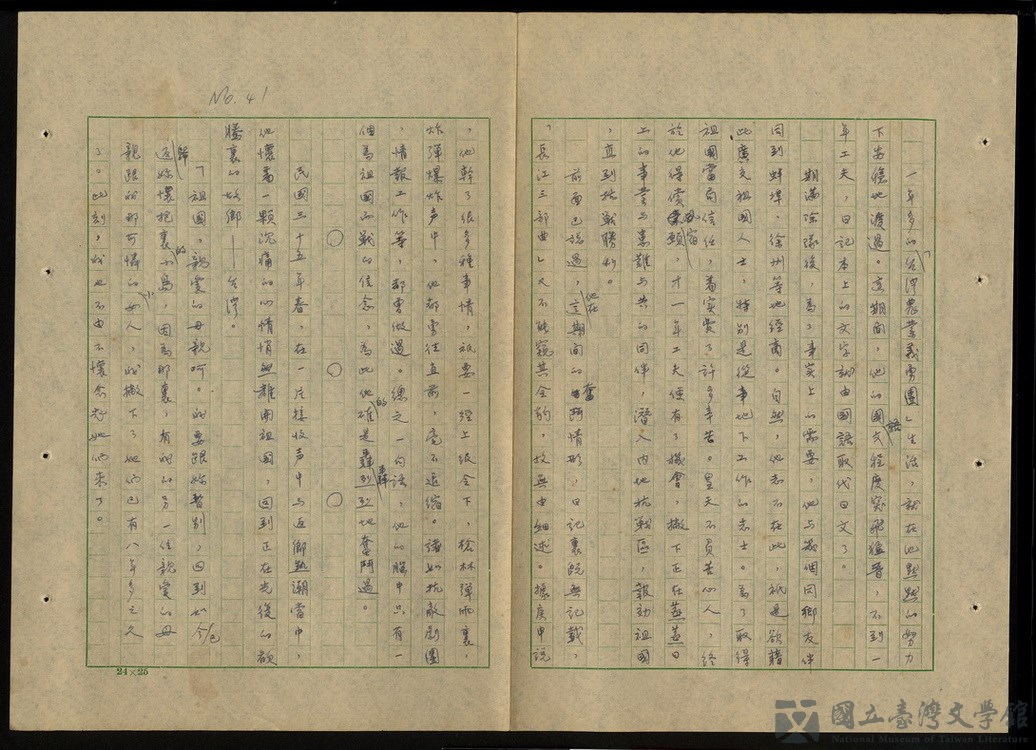 No. 41
一年多的「台灣農業義勇團」生活，就在他默默的努力
下安穩地渡過。這期間，他的國語文程度突飛猛晉，不到一
年工夫，日記本上的文字就由國語取代日文了。
期滿除隊後，為了事實上的需要，他与幾個同鄉友伴
同到蚌埠、徐州等地經商。自然，他志不在此，祇是欲藉
此廣交祖國人士，特別是從事地下工作的志士。為了取得
祖國當局信任，着實費了許多辛苦。皇天不負苦心人，終
於他得償宿願，才一年工夫便有了機會，撇下正在蒸蒸日
上的事業与患難与共的同伴，潛入內地抗戰區，報効祖國
，直到抗戰勝利。
前面已說過，他在這期間的奮鬥情形，日記裏既無記載，
「長江三部曲」又不能窺其全豹，故無由細述。據庚申說
，他幹了很多種事情，祇要一經上級令下，槍林彈雨裏，
炸彈爆炸声中，他都勇往直前，毫不退縮。諸如抗敵劇團
，情報工作等，都曾做過。總之一句話，他的腦中只有一
個為祖國而戰的信念，為此他的確是轟轟烈烈地奮鬥過。
○ ○ ○
民國三十五年春，在一片接收声中与返鄉熱潮當中，
他懷着一顆沉痛的心情悄然離開祖國，回到正在光復的歡
騰裏的故鄉——台灣。
「祖國，親愛的母親呵。我要跟妳暫別，回到如今已
歸返妳懷抱裏的小島，因為那裏，有我的另一位親愛的母
親跟我那可憐的女人，我撇下了她們已有八年多之久
了。此刻，我也不由不懷念起她們來了。
24×25
國立臺灣文學館
National Museum of Taiwan Literature